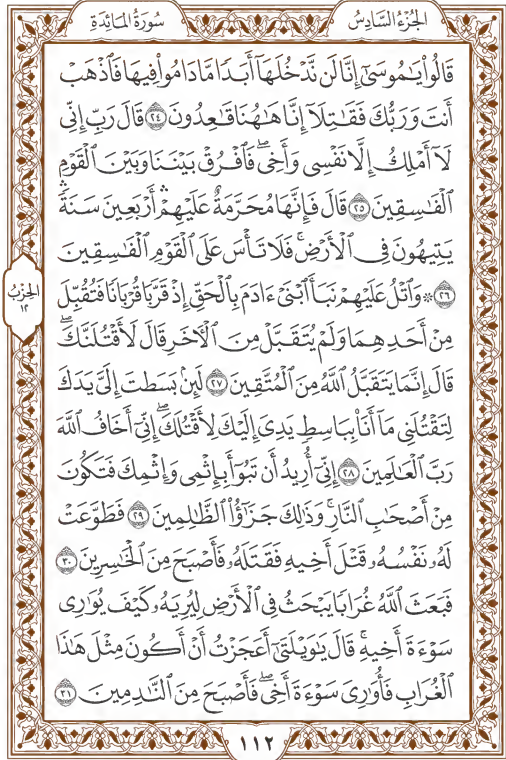 الجُزْءُ السَّادِسُ
سُورَةُ المَائِدَةِ
قَالُواْ يَـٰمُوسَىٰٓ إِنَّا لَن نَّدْخُلَهَآ أَبَدًا مَّا دَامُواْ فِيهَا فَٱذْهَبْ
أَنتَ وَرَبُّكَ فَقَـٰتِلَآ إِنَّا هَـٰهُنَا قَـٰعِدُونَ ٢٤ قَالَ رَبِّ إِنِّى
لَآ أَمْلِكُ إِلَّا نَفْسِى وَأَخِىۖ فَٱفْرُقْ بَيْنَنَا وَبَيْنَ ٱلْقَوْمِ
ٱلْفَـٰسِقِينَ ٢٥ قَالَ فَإِنَّهَا مُحَرَّمَةٌ عَلَيْهِمْۛ أَرْبَعِينَ سَنَةًۛ
يَتِيهُونَ فِى ٱلْأَرْضِۚ فَلَا تَأْسَ عَلَى ٱلْقَوْمِ ٱلْفَـٰسِقِينَ
٢٦ ۞ وَٱتْلُ عَلَيْهِمْ نَبَأَ ٱبْنَىْ ءَادَمَ بِٱلْحَقِّ إِذْ قَرَّبَا قُرْبَانًا فَتُقُبِّلَ
مِنْ أَحَدِهِمَا وَلَمْ يُتَقَبَّلْ مِنَ ٱلْأَخَرِ قَالَ لَأَقْتُلَنَّكَۖ
قَالَ إِنَّمَا يَتَقَبَّلُ ٱللَّهُ مِنَ ٱلْمُتَّقِينَ ٢٧ لَئِنۢ بَسَطتَ إِلَىَّ يَدَكَ
لِتَقْتُلَنِى مَآ أَنَا۠ بِبَاسِطٍ يَدِىَ إِلَيْكَ لِأَقْتُلَكَۖ إِنِّىٓ أَخَافُ ٱللَّهَ
رَبَّ ٱلْعَـٰلَمِينَ ٢٨ إِنِّىٓ أُرِيدُ أَن تَبُوٓأَ بِإِثْمِى وَإِثْمِكَ فَتَكُونَ
مِنْ أَصْحَـٰبِ ٱلنَّارِۚ وَذَٰلِكَ جَزَٰٓؤُاْ ٱلظَّـٰلِمِينَ ٢٩ فَطَوَّعَتْ
لَهُۥ نَفْسُهُۥ قَتْلَ أَخِيهِ فَقَتَلَهُۥ فَأَصْبَحَ مِنَ ٱلْخَـٰسِرِينَ ٣٠
فَبَعَثَ ٱللَّهُ غُرَابًا يَبْحَثُ فِى ٱلْأَرْضِ لِيُرِيَهُۥ كَيْفَ يُوَٰرِى
سَوْءَةَ أَخِيهِۚ قَالَ يَـٰوَيْلَتَىٰٓ أَعَجَزْتُ أَنْ أَكُونَ مِثْلَ هَـٰذَا
ٱلْغُرَابِ فَأُوَٰرِىَ سَوْءَةَ أَخِىۖ فَأَصْبَحَ مِنَ ٱلنَّـٰدِمِينَ ٣١
الحِزْبُ
١٢
١١٢